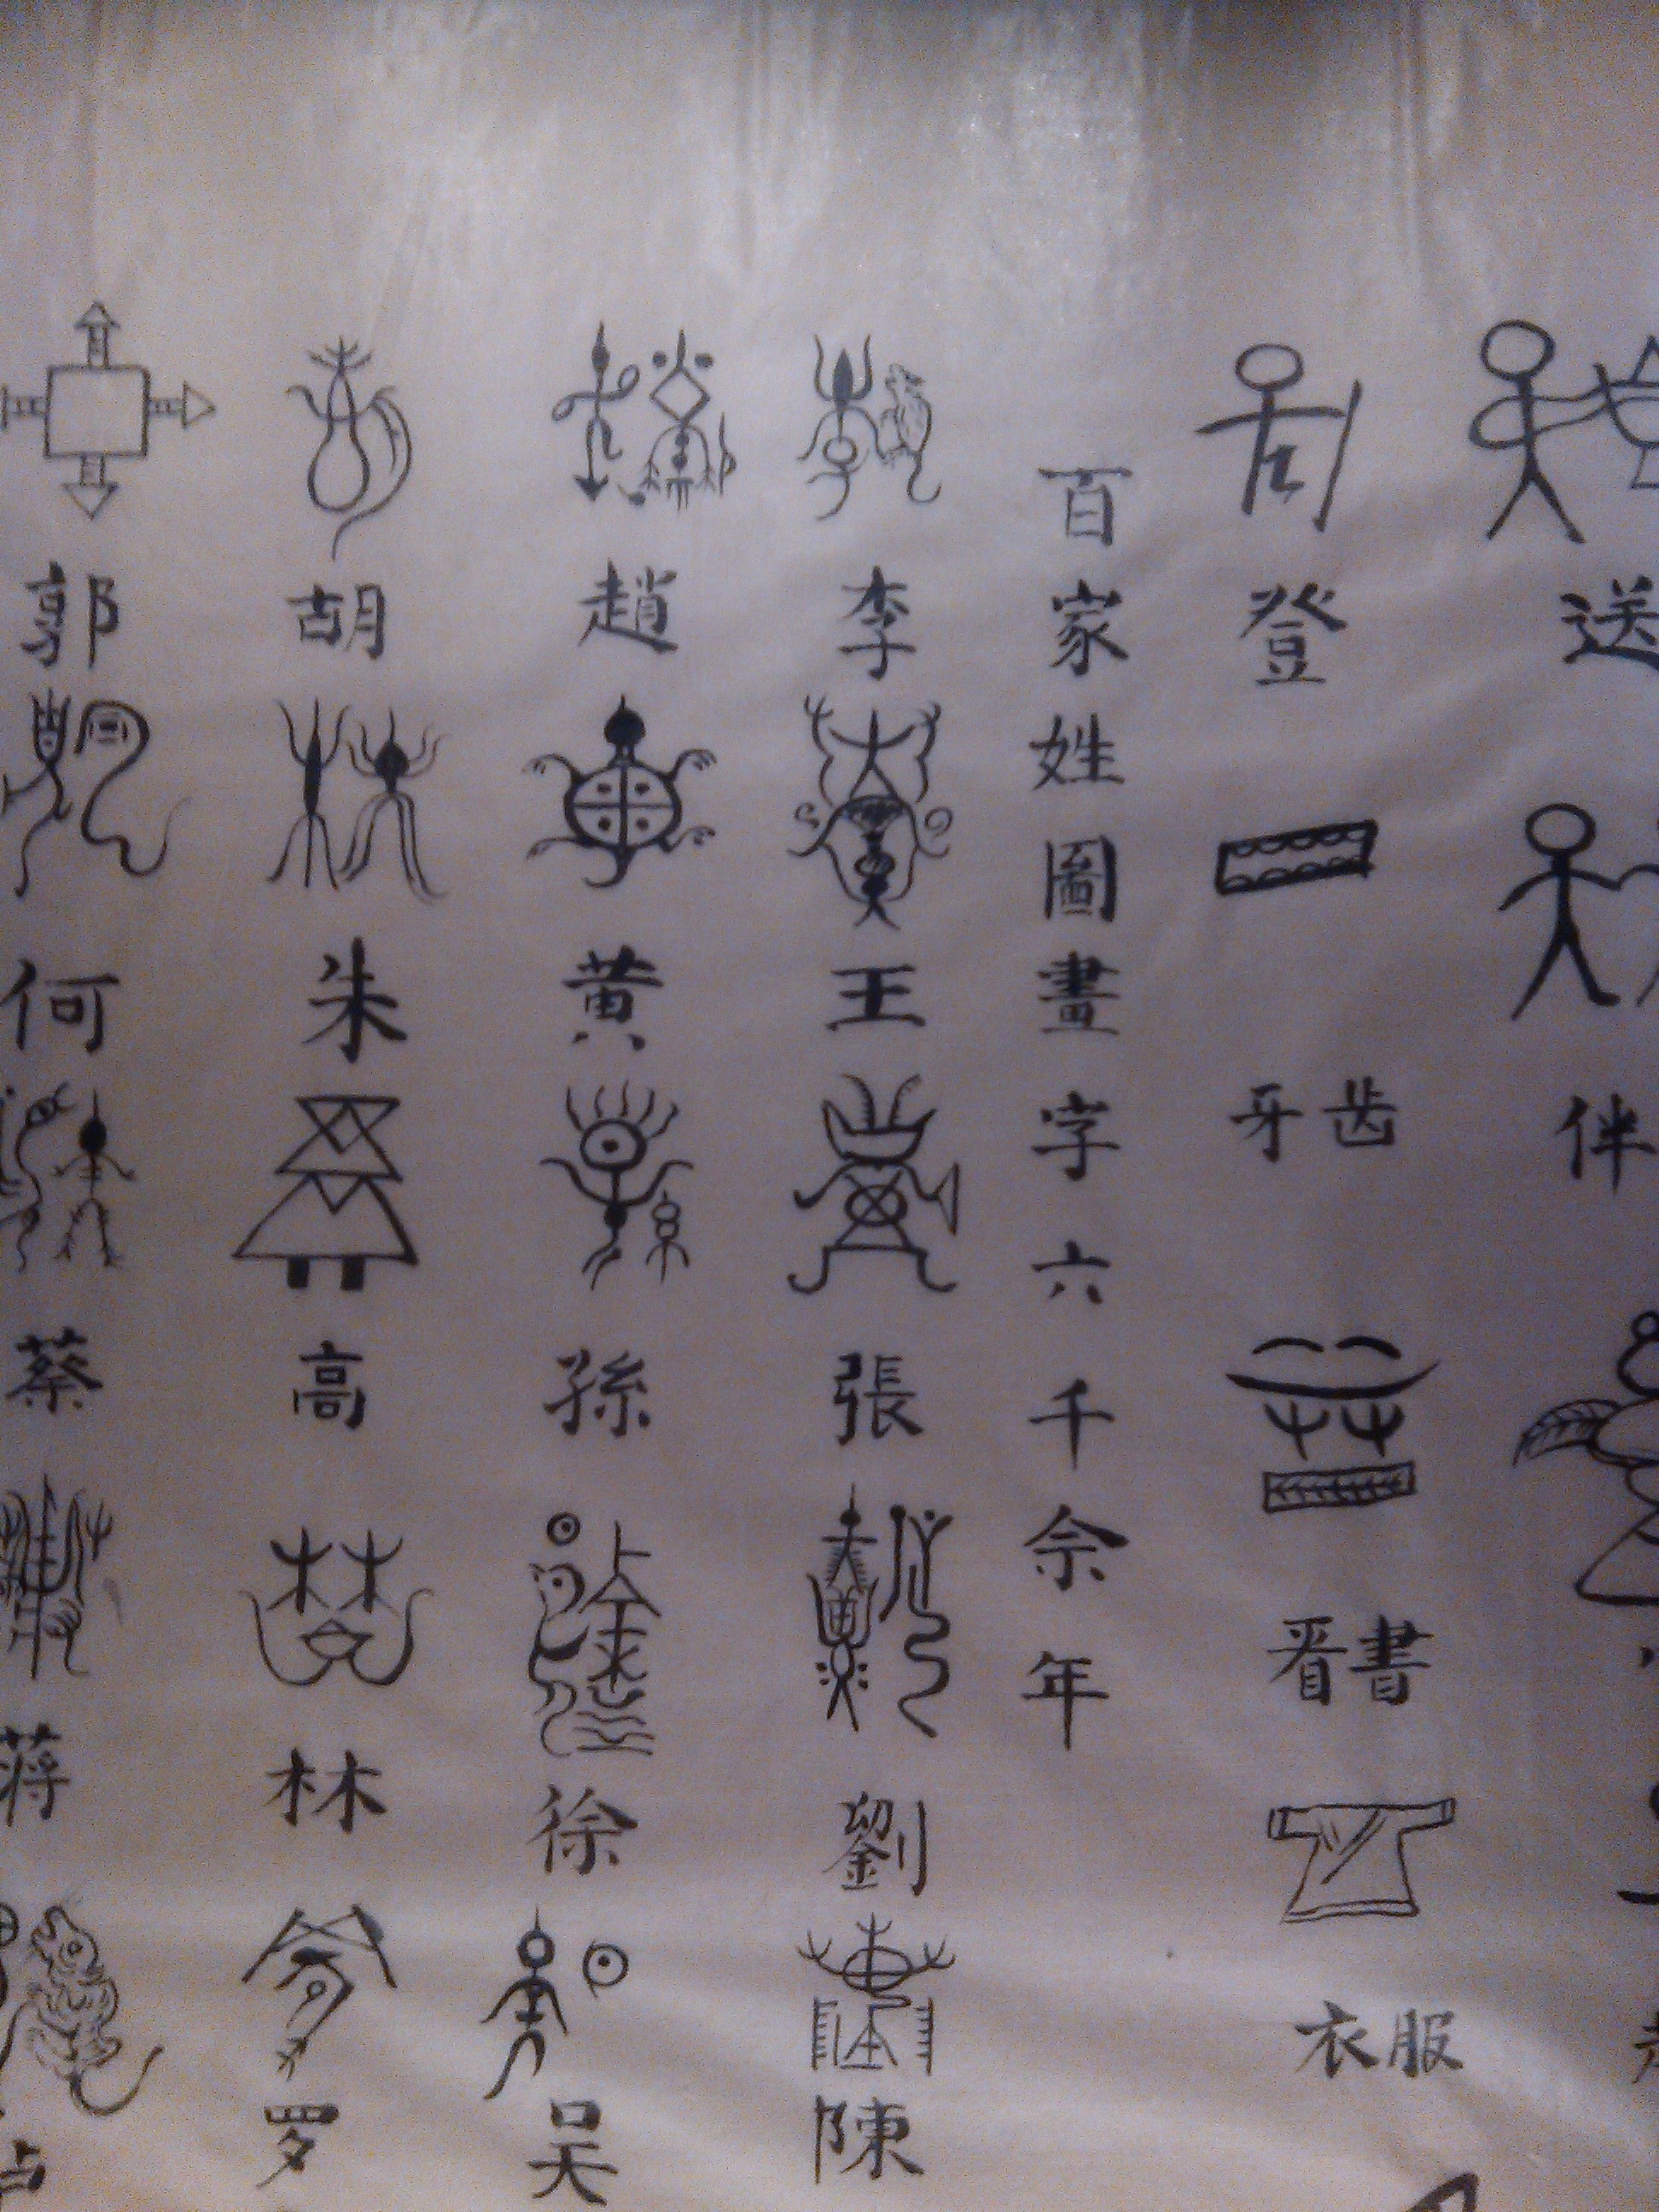 送
伴
登
牙齿
看書
衣服
百家姓圖畫字六千余年
李
王
張
劉
陳
趙
黄
孫
徐
吴
胡
朱
高
林
罗
郭
何
蔡
蒋